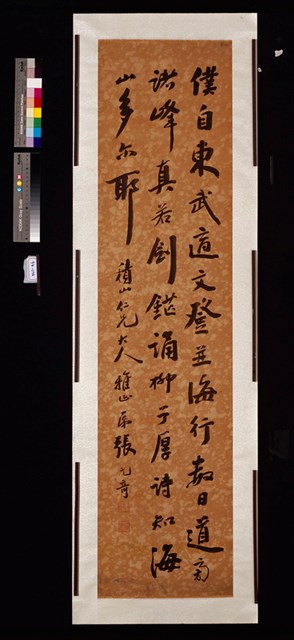 僕自東武適文登並海行數日道旁
諸峰真若劍鋩誦柳子厚詩知海
山多爾耶
積山仁兄大人雅正弟張元奇